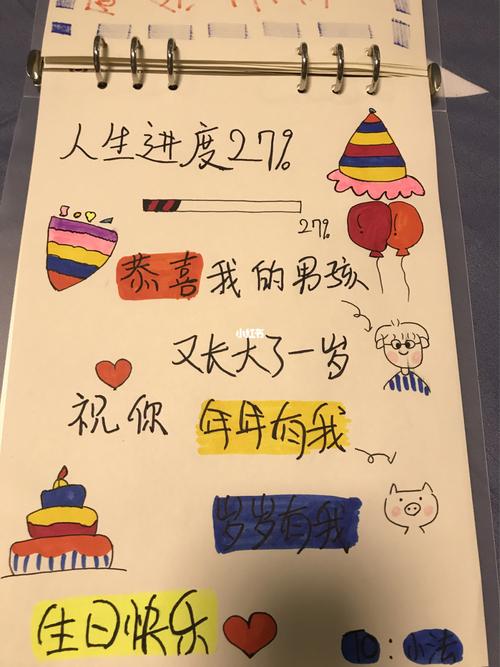 人生进度27%
27%
恭喜我的男孩
又长大了一岁
小红书
祝你年年有我
岁岁有我
生日快乐